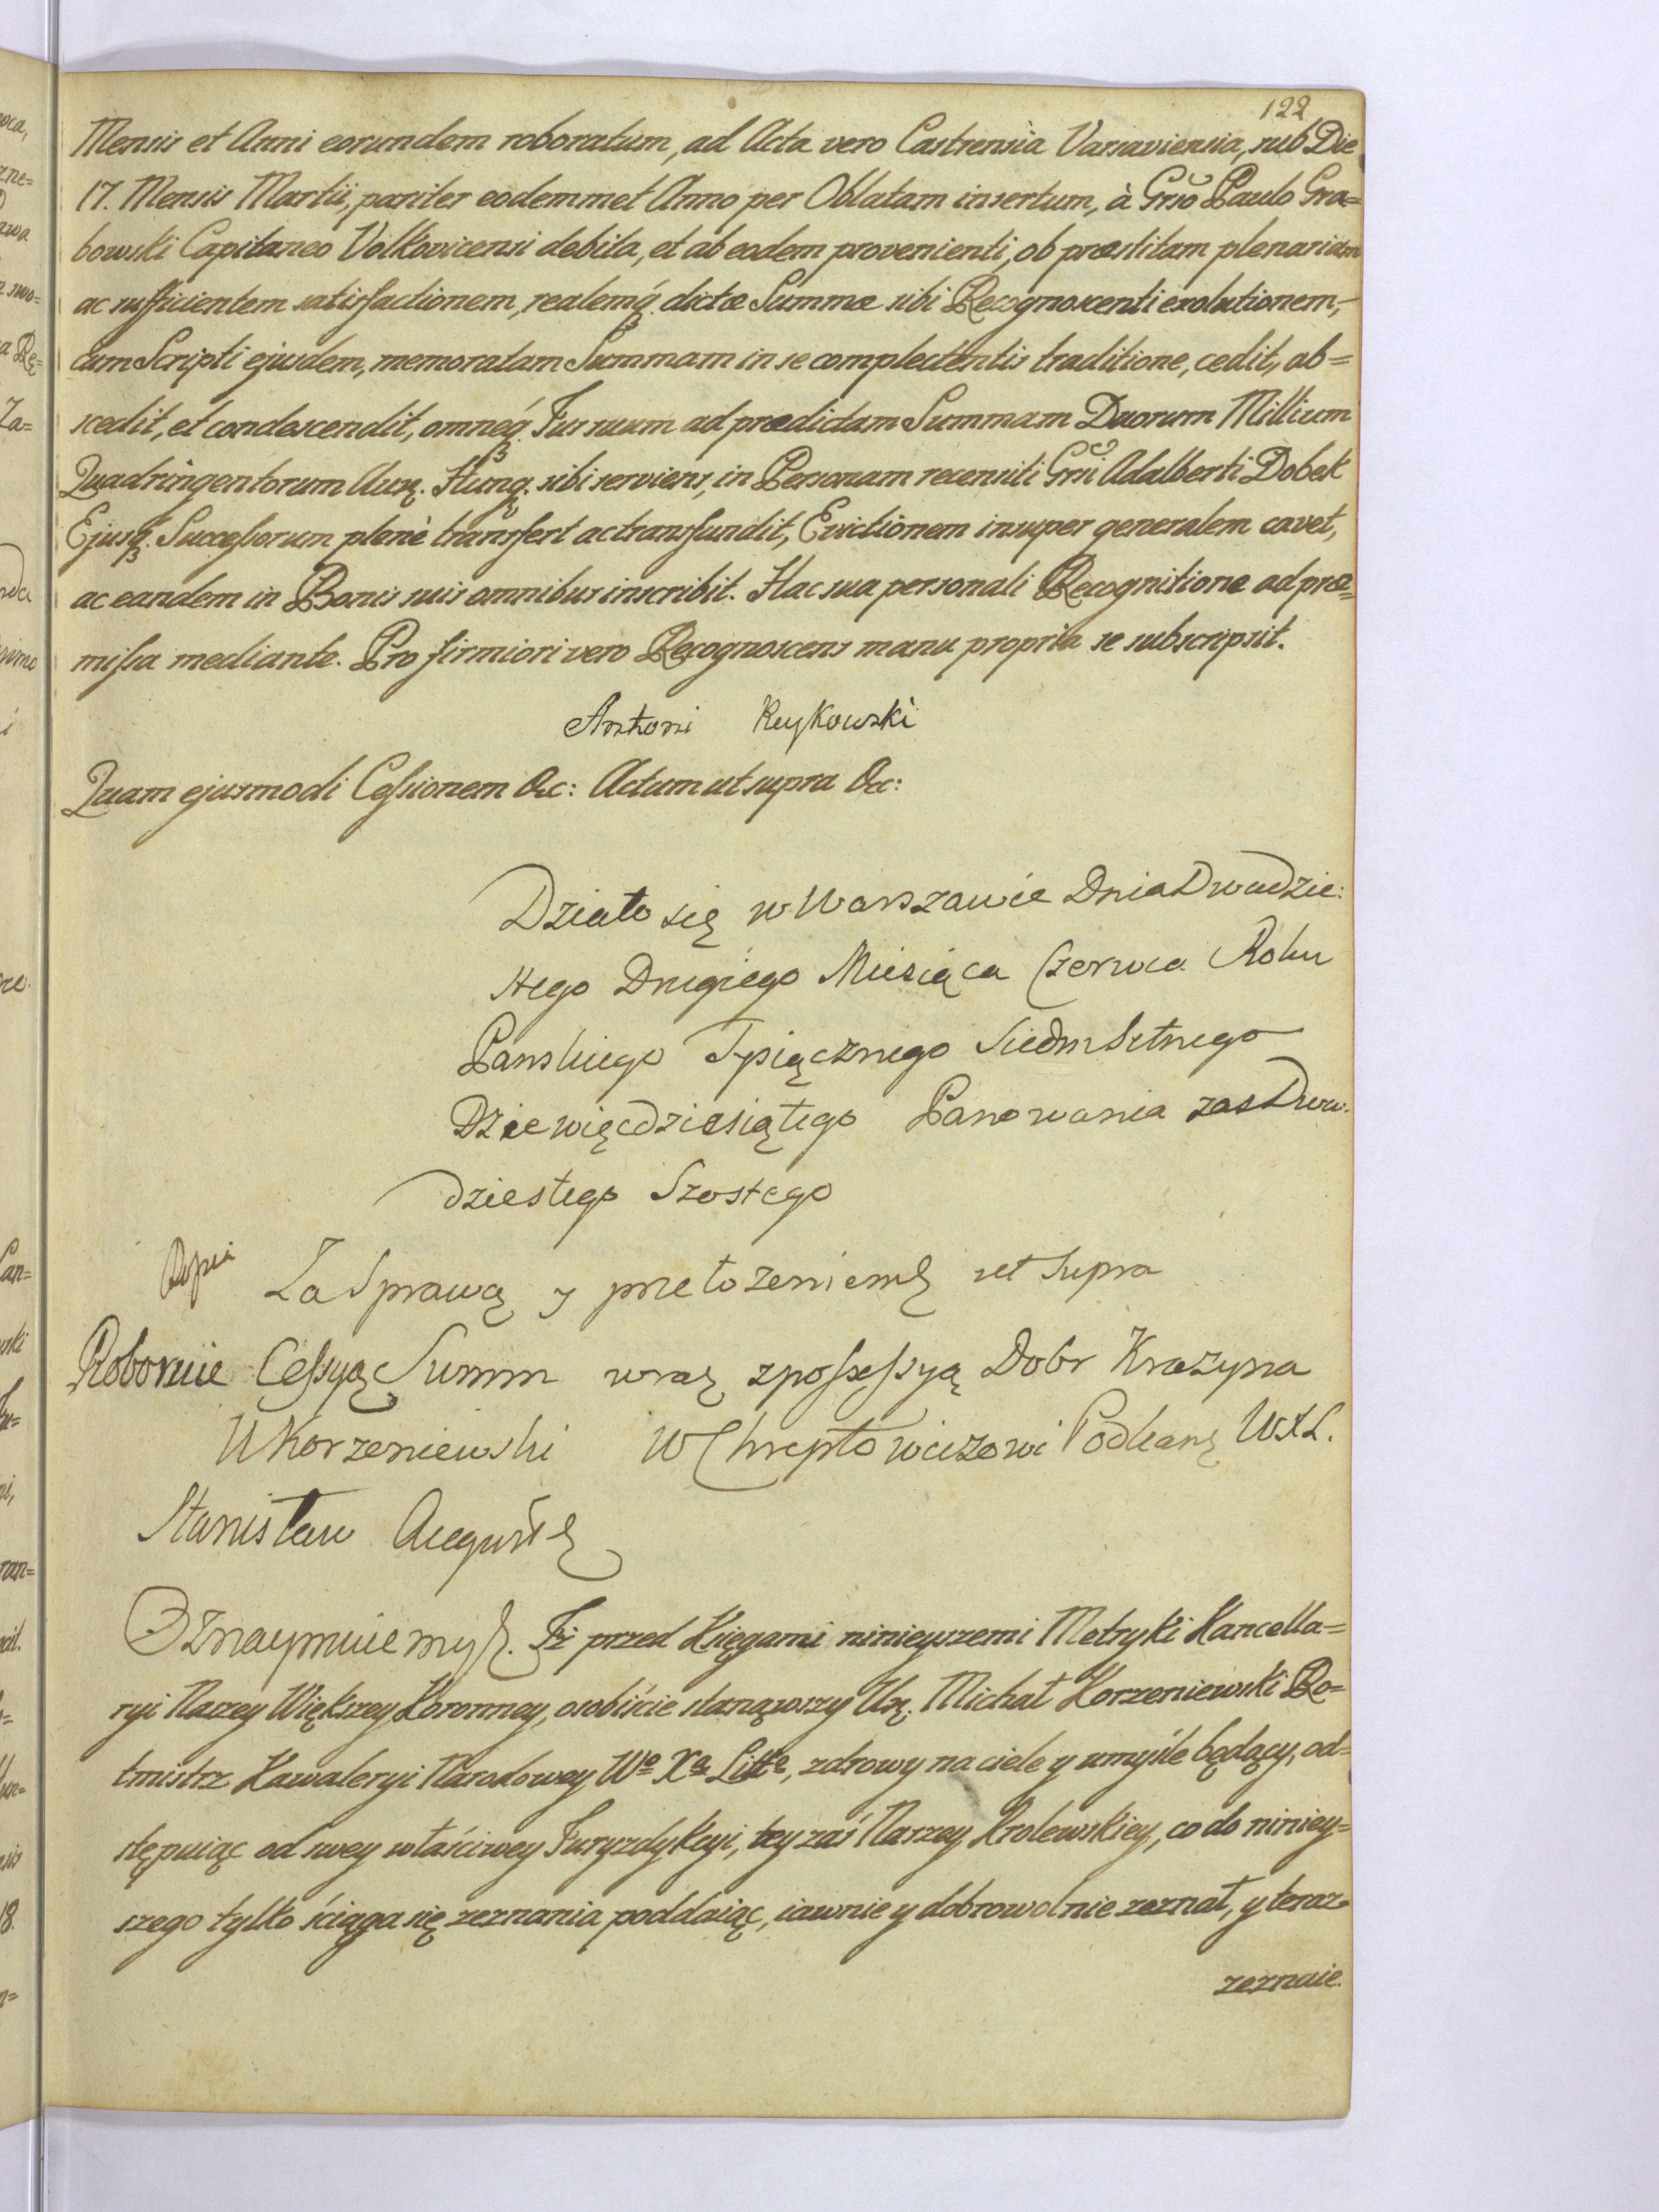 122
Mensis et Anni eorundem roboratum, ad Acta vero Castrensia Varsaviensia, sub Die
17. Mensis Martii, pariter eodemmet Anno per Oblatam insertum, à Grso Paulo Gra=
bowski Capitaneo Volkovicensi debita, et ab eodem provenienti, ob præstitam plenariam
ac sufficientem satisfactionem, realemq́ dictæ Summæ sibi Recognoscenti exolutionem,
cum Scripti ejusdem, memoratam Summam in se complectentis traditione, cedit, ab=
scedit, et condescendit, omneq́ Jus suum ad prædictam Summam Duorum Millium
Quadringentorum Aur. Hung. sibi serviens, in Personam recensiti Grsi Adalberti Dobek
Ejusq́ Successorum plenè transfert ac transfundit, Evictionem insuper generalem cavet,
ac eandem in Bonis suis omnibus inscribit. Hac sua personali Recognitione ad præ=
missa mediante. Pro firmiori vero Recognoscens manu propria se subscripsit.
Antoni Reykowski
Quam ejusmodi Cessionem &c: Actum ut supra &c:
Działo się w Warszawie Dnia Dwudzie:
stego Drugiego Miesiąca Czerwca Roku
Panskiego Tysiącznego Siedmsetnego
Dziewięcdziesiątego Panowania zas Dwu.
dziestego Szostego
Za Sprawą y przełozeniem ut Supra
Roboruie Cessyą Summ wraz zpossessyą Dobr Krazyna
U Korzeniewski W Chreptowiczowi Podkanc WXL.
Stanisław August
Oznaymuiemy. Iż przed Księgami ninieyszemi Metryki Kancella=
ryi Naszey Większey Koronney, osobiście stanąwszy Ur. Michał Korzeniewski Ro=
tmistrz Kawaleryi Narodowey Wo Xa Litto, zdrowy na ciele y umyśle będący, od=
stępuiąc od swey właściwey Juryzdykcyi, tey zaś Naszey Krolewskiey, co do niniey=
szego tylko ściąga się zeznania poddaiąc, iawnie y dobrowolnie zeznał, y teraz
zeznaie.